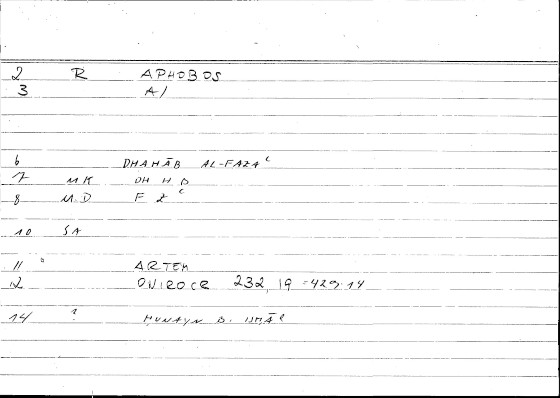 2 R APHOBOS
3 A/
6 DHAHĀB AL-FAZAʿ
7 MK DH H B
8 M.D F Zʿ
10 SA
11 ARTEM
12 ONIROCR 232, 19 = 429.14
14 ? ḤUNAYN B. ISḤĀQ